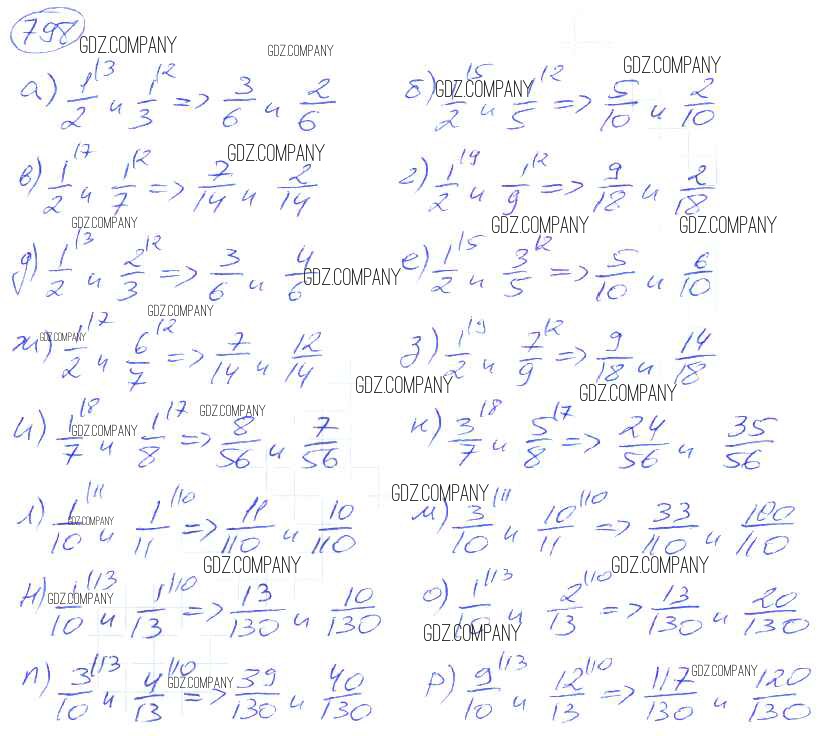 798
GDZ.COMPANY GDZ.COMPANY
GDZ.COMPANY
а) 1/2 |3 и 1/3 |2 => 3/6 и 2/6 б) 1/2 |5 и 1/5 |2 => 5/10 и 2/10
GDZ.COMPANY
GDZ.COMPANY
в) 1/2 |7 и 1/7 |2 => 7/14 и 2/14 г) 1/2 |9 и 1/9 |2 => 9/18 и 2/18
GDZ.COMPANY GDZ.COMPANY GDZ.COMPANY
д) 1/2 |3 и 2/3 |2 => 3/6 и 4/6 е) 1/2 |5 и 3/5 |2 => 5/10 и 6/10
GDZ.COMPANY
GDZ.COMPANY
GDZ.COMPANY
ж) 1/2 |7 и 6/7 |2 => 7/14 и 12/14 з) 1/2 |9 и 7/9 |2 => 9/18 и 14/18
GDZ.COMPANY GDZ.COMPANY
GDZ.COMPANY
и) 1/7 |8 и 1/8 |7 => 8/56 и 7/56 к) 3/7 |8 и 5/8 |7 => 24/56 и 35/56
GDZ.COMPANY
GDZ.COMPANY
л) 1/10 |11 и 1/11 |10 => 11/110 и 10/110 м) 3/10 |11 и 10/11 |10 => 33/110 и 100/110
GDZ.COMPANY
GDZ.COMPANY GDZ.COMPANY
н) 1/10 |13 и 1/13 |10 => 13/130 и 10/130 о) 1/10 |13 и 2/13 |10 => 13/130 и 20/130
GDZ.COMPANY
GDZ.COMPANY
п) 3/10 |13 и 4/13 |10 => 39/130 и 40/130 р) 9/10 |13 и 12/13 |10 => 117/130 и 120/130
GDZ.COMPANY GDZ.COMPANY